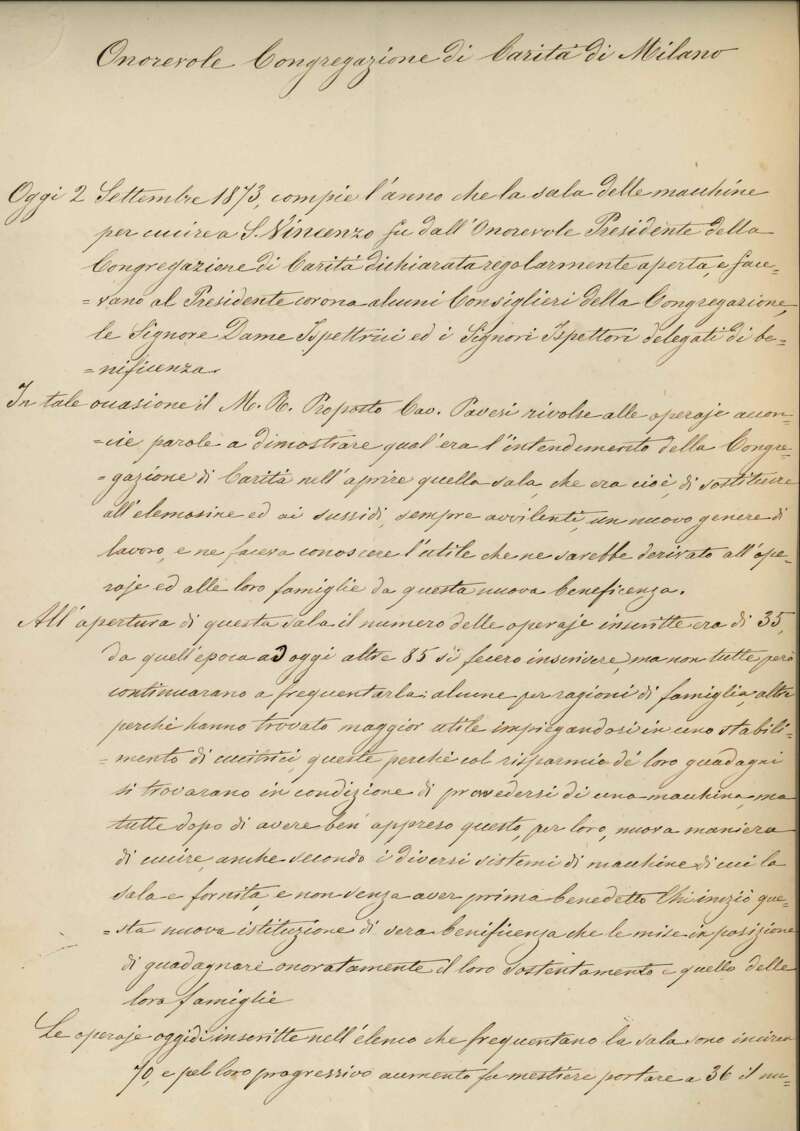 Onorevole Congregazione di Carità di Milano
Oggi 2 Settembre 1873, compie l'anno che la sala delle macchine
per cucire a S. Vincenzo fu dall'Onorevole Presidente della
Congregazione di Carità dichiarata regolarmente aperta, e face-
=vano al Presidente corona alcuni Consiglieri della Congregazione,
le Signore Dame Ispettrici ed i Signori Ispettori delegati di be-
=nificenza.
In tale occasione il M. R. Proposto Cav. Pavesi rivolse alle operaje accon-
=cie parole a dimostrare qual'era l'intendimento della Congre-
=gazione di Carità nell'aprire quella sala, che era cioè, di sostituire
all'elemosine ed ai sussidi, sempre avvilenti, un nuovo genere di
lavoro, e ne faceva conoscere l'utile che ne sarebbe derivato all'ope-
raje ed alle loro famiglie da questa nuova beneficenza.
All'apertura di questa sala il numero delle operaje inscritte era di 35,
da quell'epoca ad oggi altre 85 si fecero inscrivere, ma non tutte però
continuarano a frequentarla: alcune per ragioni di famiglia, altre
perchè hanno trovato maggior utile impiegandosi in uno stabili-
=mento di cucitrici, queste perchè col risparmio de' loro guadagni
si trovarano in condizione di provvedersi di una macchina, ma
tutte dopo di avere ben' appreso questo, per loro, nuova maniera
di cucire, anche secondo i diversi sistemi di macchine di cui la
sala è fornita, e non senza aver prima benedetto Chi iniziò que-
=sta nuova istituzione di vera benificenza che le mise in posizione
di guadagnare onoratamente il loro sostentamento e quello delle
loro famiglie
Le operaje oggidì inscritte nell'elenco che frequentano la sala sono incirca
70, e pel loro progressivo aumento fa mestiere portare a 36 il nu-